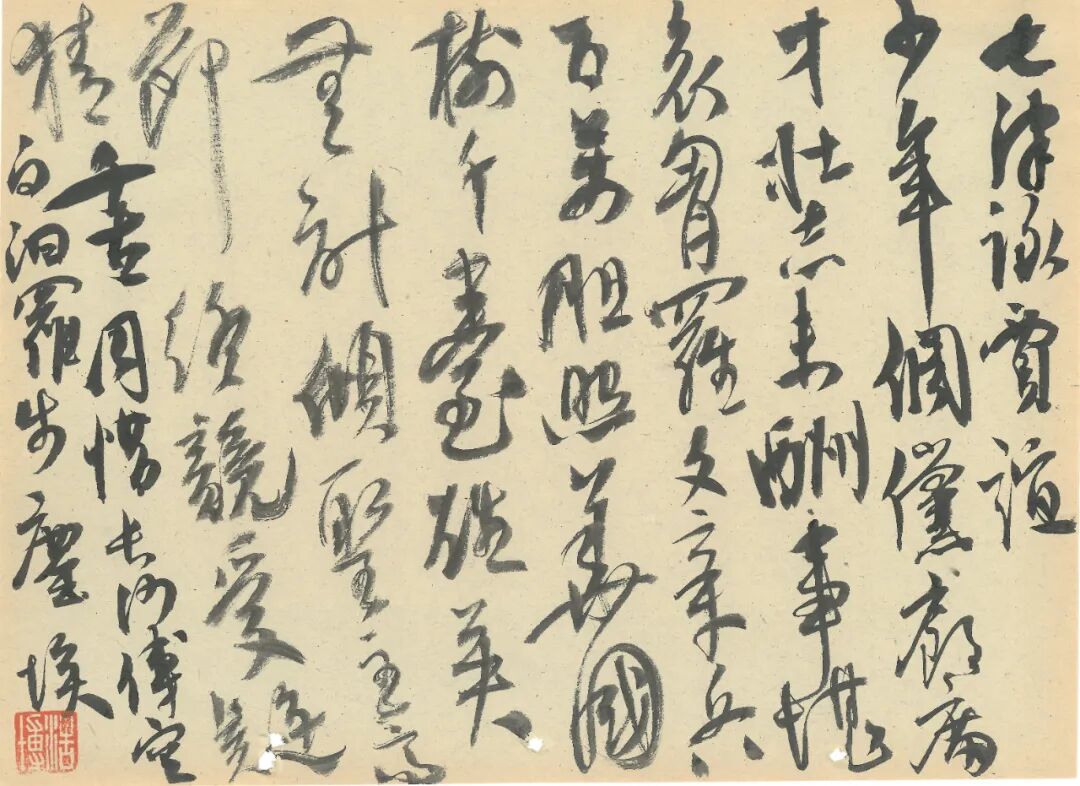 七律詠賈誼
少年倜儻廊廟
才壯志未酬事堪
哀胷羅文章兵
百萬胆照華國
樹千臺雄英
無計傾聖主高
節終競受疑
猜
千古同惜長沙傅空
白汨羅步塵埃